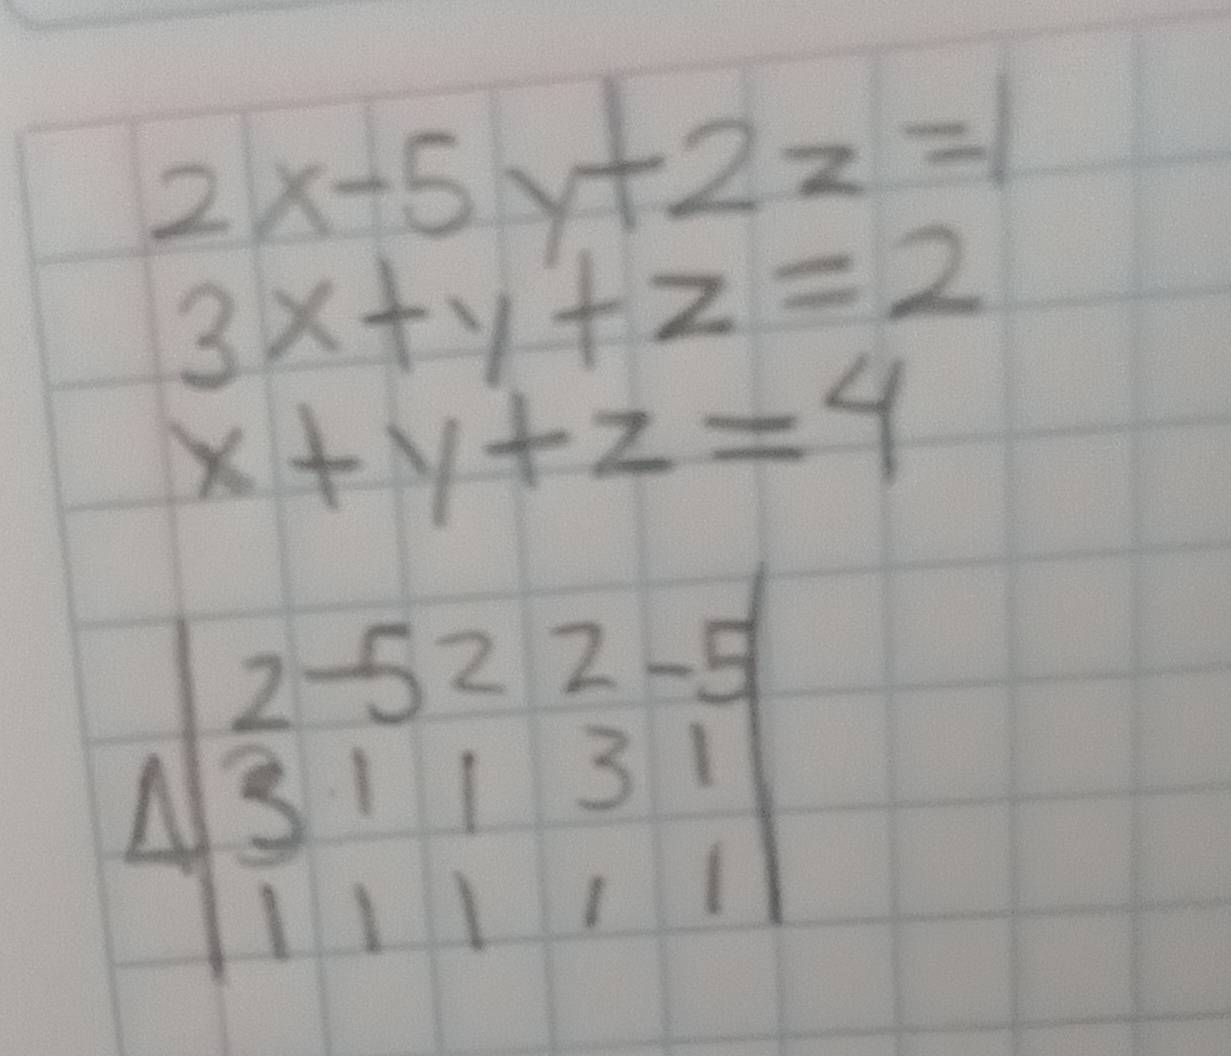 2x-5y+2z=1
3x+y+z=2
x+y+z=4
2 -5 2 2 -5
Δ 3 1 1 3 1
1 1 1 1 1